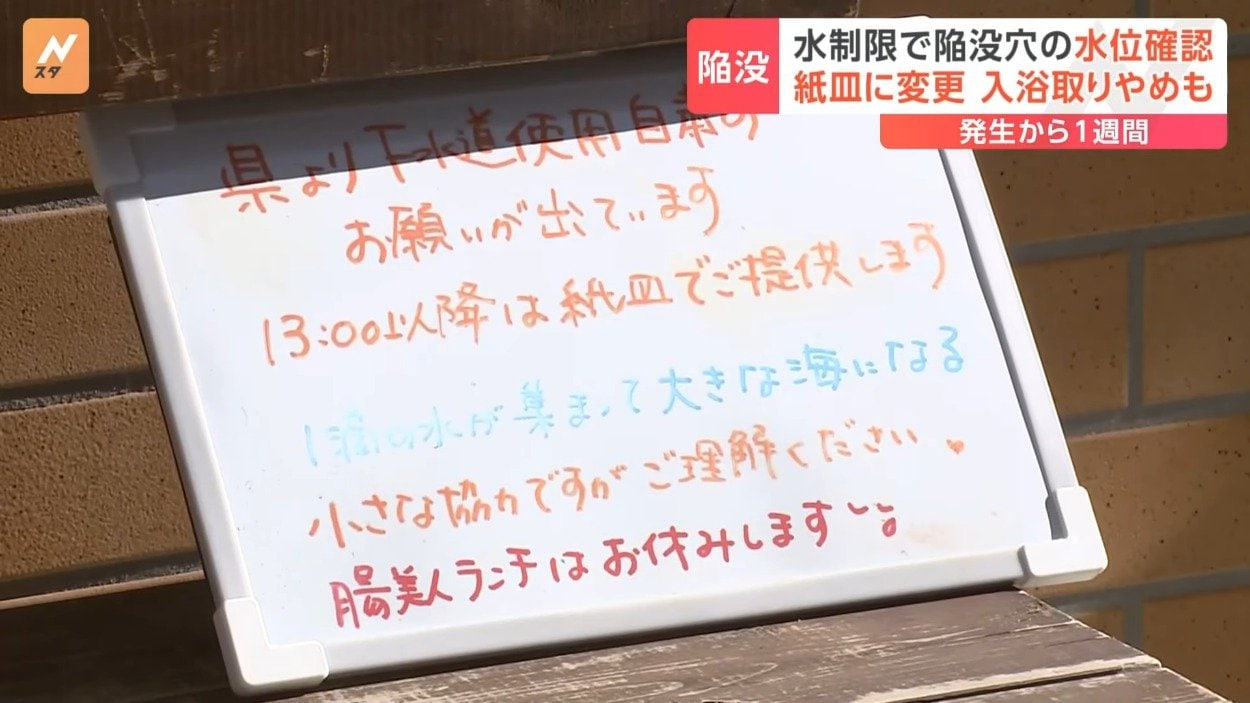 Nスタ
陥没
水制限で陥没穴の水位確認
紙皿に変更 入浴取りやめも
発生から1週間
県より下水道使用自粛の
お願いが出ています
13:00以降は紙皿でご提供します
1滴の水が集まって大きな海になる
小さな協力ですがご理解ください
腸美人ランチはお休みします